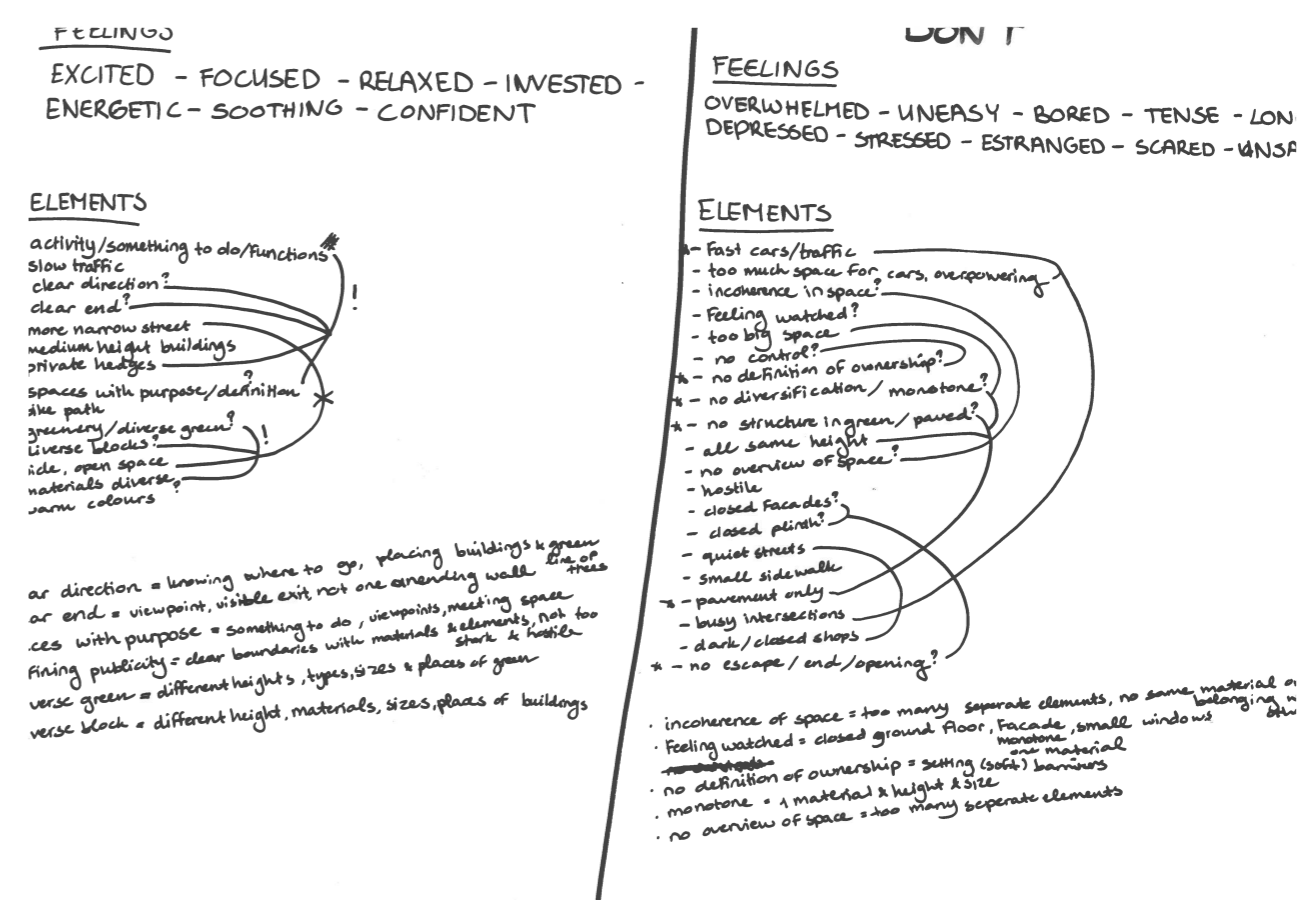 FEELINGS
EXCITED - FOCUSED - RELAXED - INVESTED -
ENERGETIC - SOOTHING - CONFIDENT
ELEMENTS
activity/something to do/functions
slow traffic
clear direction?
clear end?
more narrow street
medium height buildings
private hedges
spaces with purpose/definition?
greenery/diverse green?
blocks?
open space
materials diverse?
warm colours
!
!
ar direction = knowing where to go, placing buildings & green
line of trees
ar end = viewpoint, visible exit, not one unending wall
ces with purpose = something to do, viewpoints, meeting space
fining publicity = clear boundaries with materials & elements, not too
stark & hostile
verse green = different heights, types, sizes & places of green
verse block = different height, materials, sizes, places of buildings
DON'T
FEELINGS
OVERWHELMED - UNEASY - BORED - TENSE - LON
DEPRESSED - STRESSED - ESTRANGED - SCARED - UNSA
ELEMENTS
*- Fast cars/traffic
- too much space for cars, overpowering
- incoherence in space?
- Feeling watched?
- too big space
- no control?
* - no definition of ownership?
* - no diversification / monotone?
* - no structure in green / paved?
- all same height
- no overview of space?
- hostile
- closed facades?
- closed plinth?
- quiet streets
- small sidewalk
* - pavement only
- busy intersections
- dark/closed shops
* - no escape / end / opening?
· incoherence of space = too many seperate elements, no same material
belonging
· Feeling watched = closed ground floor, facade, small windows
monotone
one material
· no definition of ownership = setting (soft) barriers
· monotone = 1 material & height & size
· no overview of space = too many seperate elements